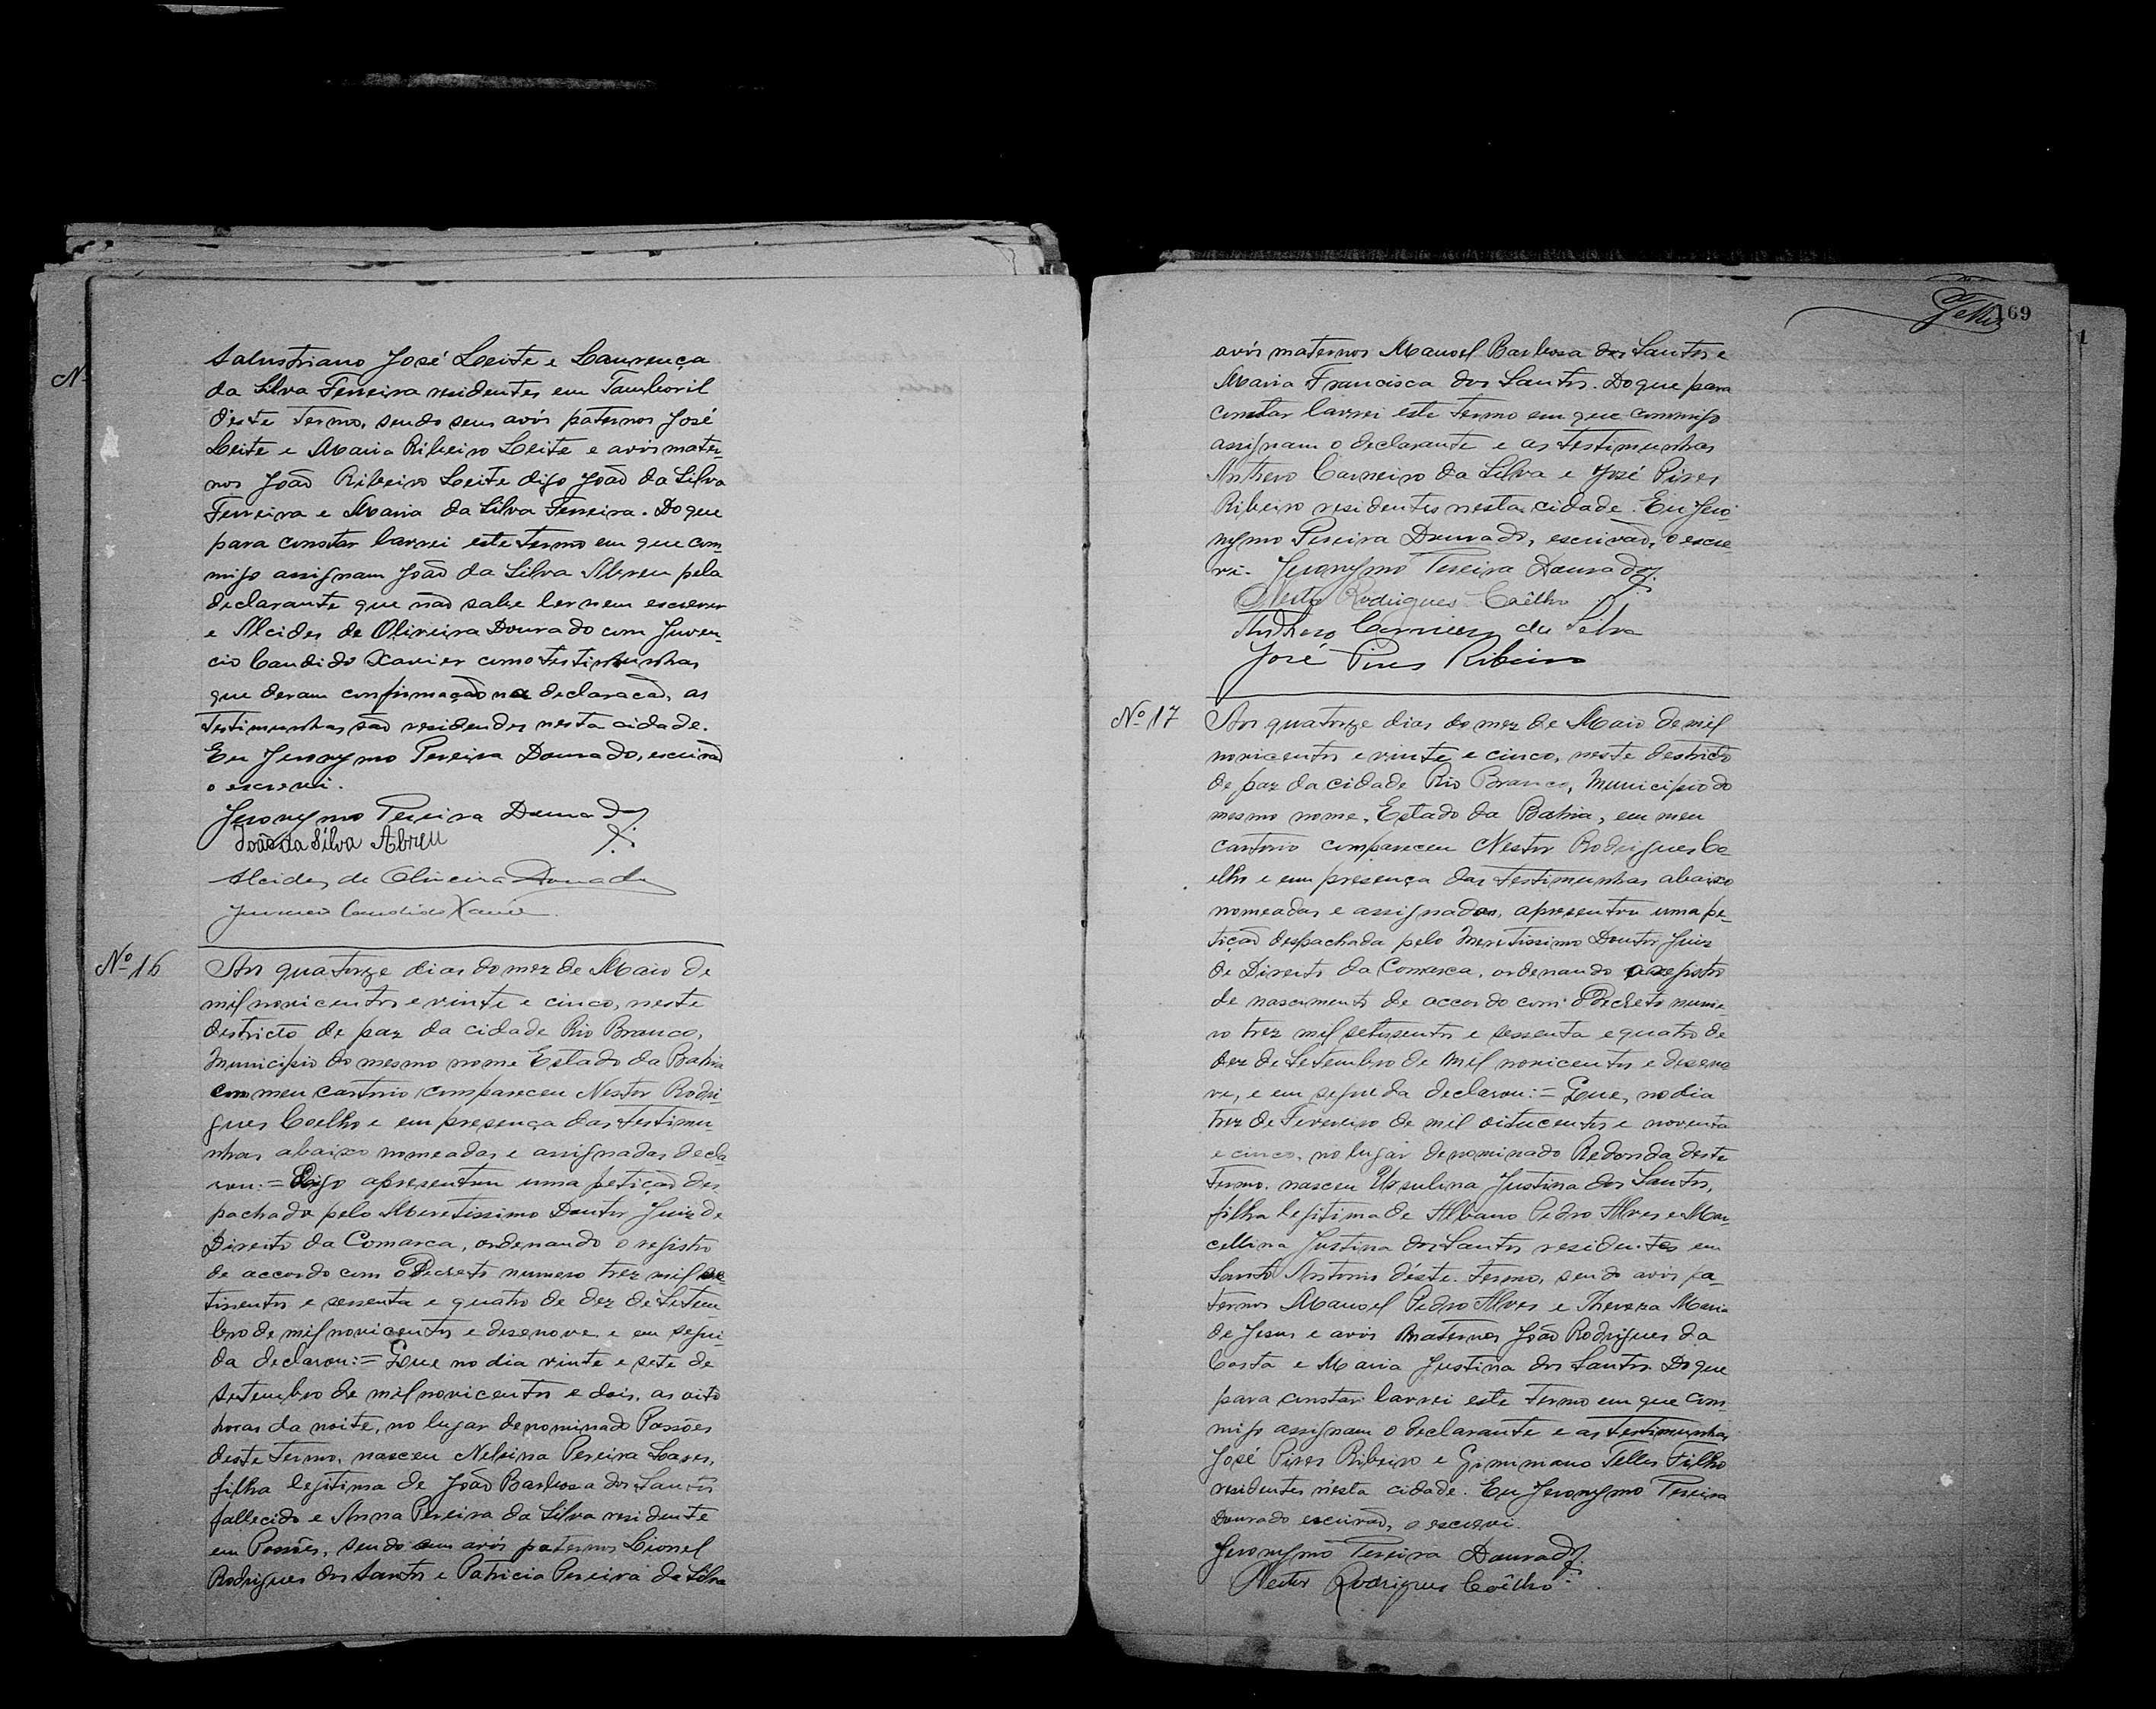 Salustriano José Leite e Laurença
da Silva Ferreira residentes em Tamboril
d'este Termo, sendo seus avós paternos José
Leite e Maria Ribeiro Leite e avós mater-
nos João Ribeiro Leite digo João da Silva
Ferreira e Maria da Silva Ferreira. Do que
para constar lavrei este termo em que com-
migo assignam João da Silva Abreu pela
declarante que não sabe ler nem escrever
e Alcides de Oliveira Dourado com Juven-
cio Candido Xavier como testimunhas
que deram confirmação na declaracão, as
testimunhas são residendes nesta cidade.
Eu Jeronymo Pereira Dourado, escrivão
o escrevi.
Jeronymo Pereira Dourado
João da Silva Abreu
Alcides de Oliveira Dourado
Juvencio Candido Xavier
Nº 16
Aos quatorze dias do mez de Maio de
mil novicentos e vinte e cinco, neste
destricto de paz da cidade Rio Branco,
Municipio do mesmo nome Estado da Bahia
em meu cartorio compareceu Nestor Rodri-
gues Coelho e em presença das testimu-
nhas abaixo nomeadas e assignadas decla-
rou:= Digo apresentou uma petição des-
pachada pelo Meretissimo Doutor Juiz de
Direito da Comarca, ordenando o registro
de accordo com o Decreto numero trez mil se-
tissentos e sessenta e quatro de dez de Setem-
bro de mil novicentos e desenove e em segui-
da declarou:= Que no dia vinte e sete de
Setembro de mil novicentos e dois, as oito
horas da noite, no lugar denominado Passões
deste Termo, nasceu Nelsina Pereira Soares,
filha legitima de João Barbosa dos Santos
fallecido e Anna Pereira da Silva residente
em Passões, sendo seus avós paternos Lionel
Rodrigues dos Santos e Patricia Pereira da Silva
169
avós maternos Manoel Barbosa dos Santos e
Maria Francisca dos Santos. Do que para
constar lavrei este termo em que commigo
assignam o declarante e as testimunhas
Anthero Carneiro da Silva e José Pires
Ribeiro residentes nesta cidade. Eu Jero-
nymo Pereira Dourado, escrivão, o escre
vi. Jeronymo Pereira Dourado
Nestor Rodrigues Coêlho
Anthero Carneiro da Silva
José Pires Ribeiro
Nº 17
Aos quatorze dias do mez de Maio de mil
novicentos e vinte e cinco, neste destricto
de paz da cidade Rio Branco, Municipio do
mesmo nome, Estado da Bahia, em meu
cartorio compareceu Nestor Rodrigues Co-
elho e em presença das testimunhas abaixo
nomeadas e assignadas, apresentou uma pe-
tição despachada pelo Meretissimo Doutor Juiz
de Direito da Comarca, ordenando o registro
de nascimento de accordo com o Decreto nume-
ro trez mil setissentos e sessenta e quatro de
dez de Setembro de mil novicentos e deseno
ve, e em segueda declarou:= Que, no dia
trez de Fevereiro de mil oitucentos e noventa
e cinco, no lugar denominado Redonda deste
Termo. nasceu Ursulina Justina dos Santos,
filha legitima de Albano Pedro Alves e Mar-
cellina Justina dos Santos residentes em
Santo Antonio d'éste termo, sendo avós pa-
ternos Manoel Pedro Alves e Thereza Maria
de Jesus e avós maternos João Rodrigues da
Costa e Maria Justina dos Santos. Do que
para constar lavrei este termo em que com
migo assignam o declarante e as testimunhas
José Pires Ribeiro e Telles Filho
residentes n'ésta cidade. Eu Jeronymo Pereira
Dourado escrivão, o escrevi.
Jeronymo Pereira Dourado
Nestor Rodrigues Coêlho